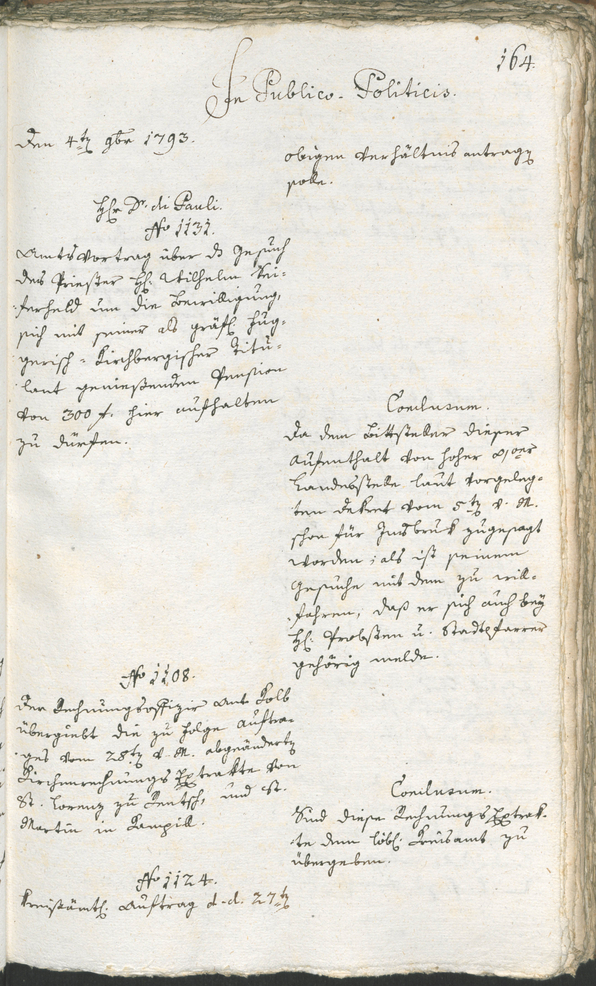 164.
In Publico-Politicis.
Den 4tn 9br 1793.
obigen Verhältnis antragen
solle.
Hr Dr. di Pauli.
No 1131.
Amtsvortrag über ds Gesuch
des Priester H. Wilhelm Sei-
ferheld um die Bewilligung,
sich mit seiner als gräfl. Fug-
gerisch-Kirchbergischer Titu-
lant genießenden Pension
von 300 f. hier aufhalten
zu dürfen.
Conclusum.
Da dem Bittsteller dieser
Aufenthalt von hoher
Landesstelle laut vorgeleg-
ten Dekret vom 5tn v. M.
schon für Insbruk zugesagt
worden; als ist seinem
Gesuche mit dem zu will-
fahren, daß er sich auch bey
H. Probsten u. Stadtpfarrer
gehörig melde.
No 1108.
Der Rechnungsoffizir Ant. Kolb
übergiebt die zu Folge Auftra-
ges vom 28tn v. M. abgeänderte
Kirchenrechnungs Extrakte von
St. Lorenz zu Rentsch, und St.
Martin in Kampill.
Conclusum.
Sind diese Rechnungs Extrak-
te dem löbl. Kreisamt zu
übergeben.
No 1124.
Kreisämtl. Auftrag d. d. 27tn